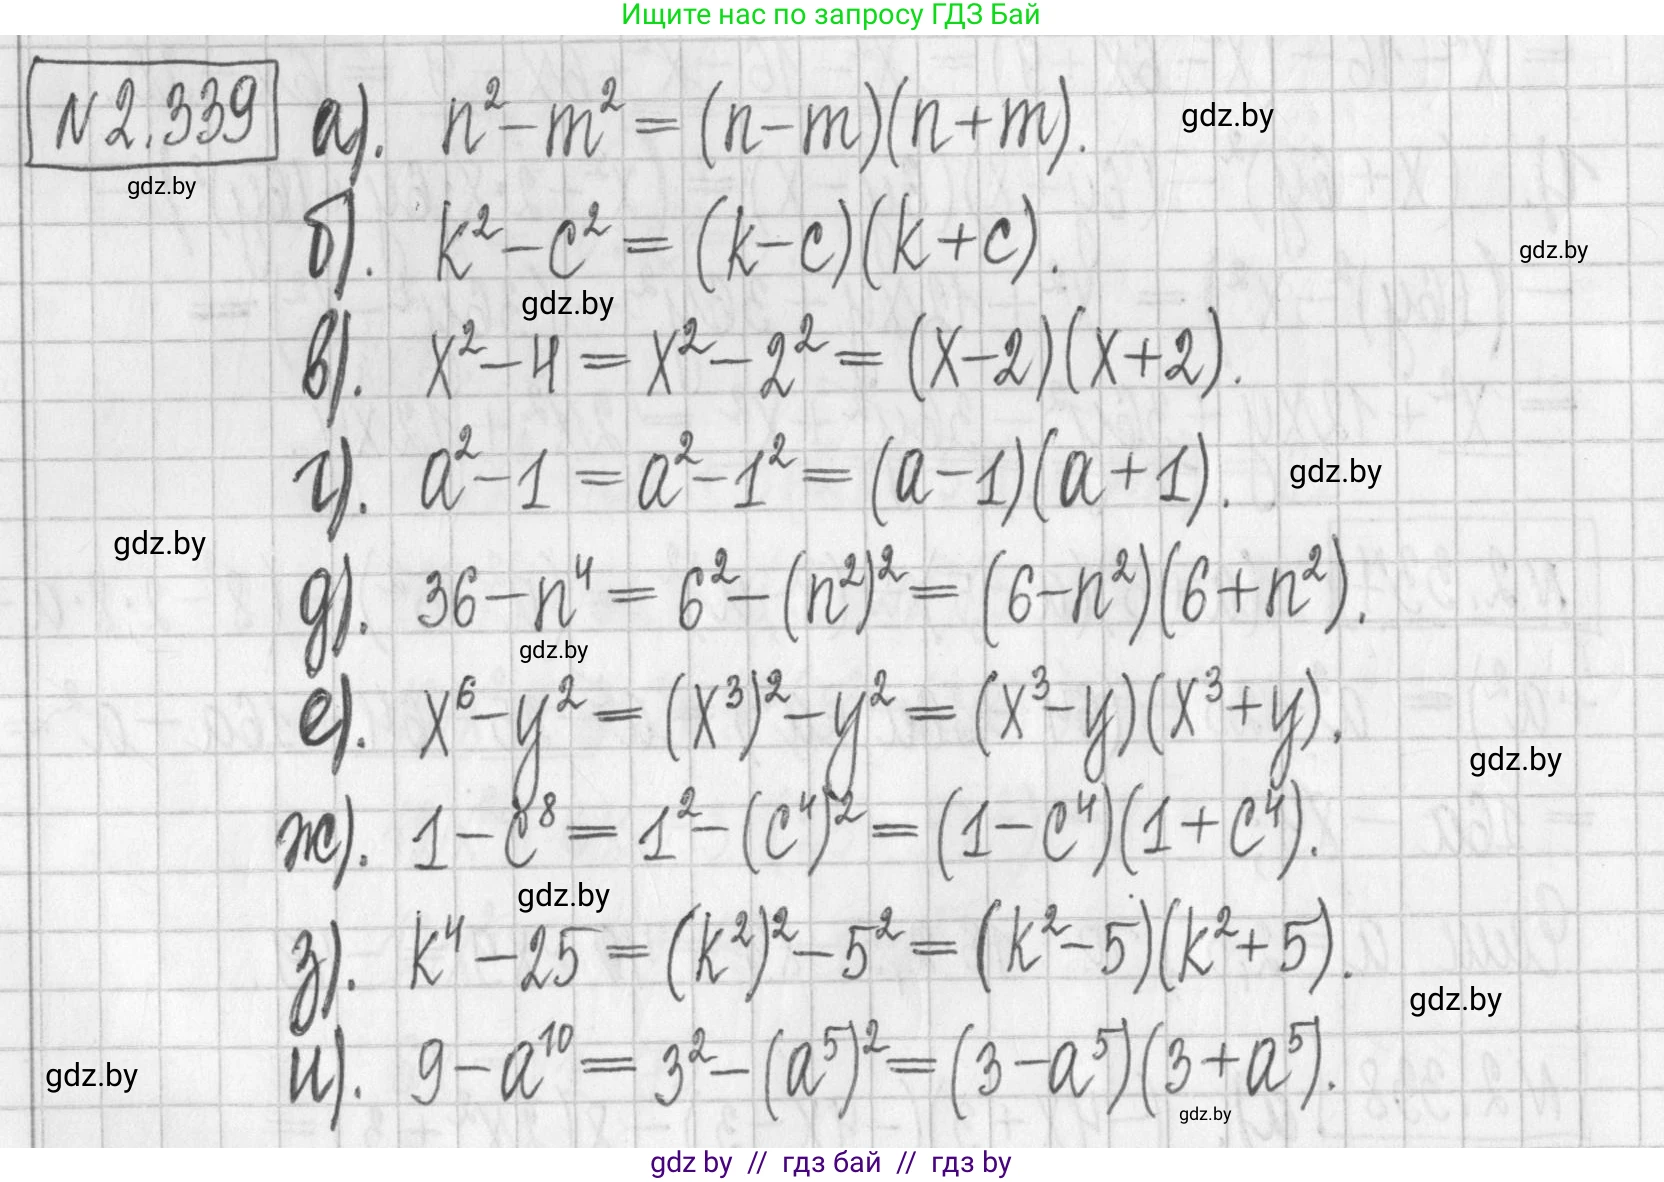 Ищите нас по запросу ГДЗ Бай
N 2.339 а). n² - m² = (n - m)(n + m). gdz.by
gdz.by
б). k² - c² = (k - c)(k + c).
gdz.by
gdz.by
в). x² - 4 = x² - 2² = (x - 2)(x + 2).
г). a² - 1 = a² - 1² = (a - 1)(a + 1). gdz.by
gdz.by
д). 36 - n⁴ = 6² - (n²)² = (6 - n²)(6 + n²).
gdz.by
е). x⁶ - y² = (x³)² - y² = (x³ - y)(x³ + y).
gdz.by
ж). 1 - c⁸ = 1² - (c⁴)² = (1 - c⁴)(1 + c⁴).
gdz.by
з). k⁴ - 25 = (k²)² - 5² = (k² - 5)(k² + 5).
gdz.by
и). 9 - a¹⁰ = 3² - (a⁵)² = (3 - a⁵)(3 + a⁵).
gdz.by
gdz.by
gdz by // гдз бай // гдз by